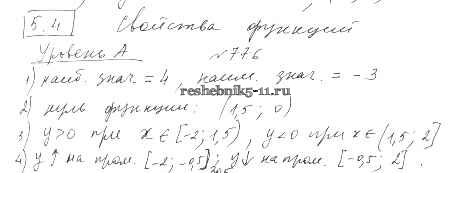 5.4 Свойства функций
Уровень А
№776
1) наиб. знач. = 4, наим. знач. = -3
reshebnik5-11.ru
2) нуль функции: (1,5; 0)
3) y>0 при x ∈ [-2; 1,5), y<0 при x ∈ (1,5; 2]
4) y ↑ на пром. [-2; -0,5]; y ↓ на пром. [-0,5; 2].